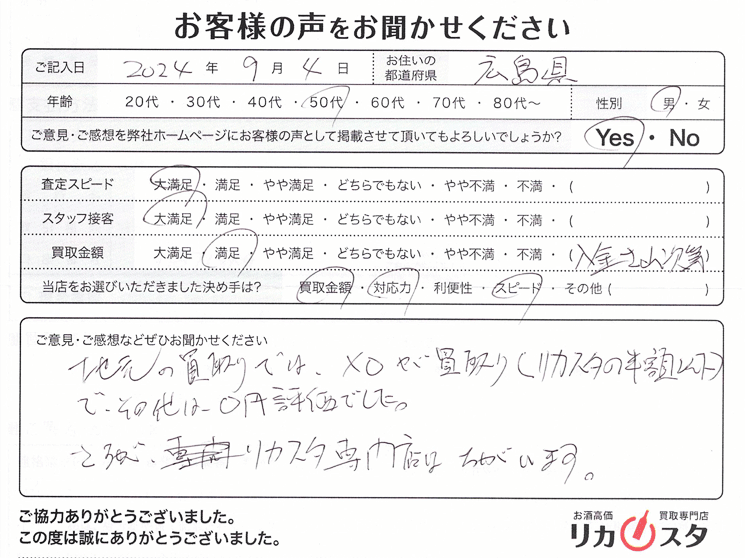 お客様の声をお聞かせください
ご記入日 2024 年 9 月 4 日 お住いの都道府県 広島県
年齢 20代 ・ 30代 ・ 40代 ・ 50代 ・ 60代 ・ 70代 ・ 80代～ 性別 男 ・ 女
ご意見・ご感想を弊社ホームページにお客様の声として掲載させて頂いてもよろしいでしょうか? Yes ・ No
査定スピード 大満足 ・ 満足 ・ やや満足 ・ どちらでもない ・ やや不満 ・ 不満 ・ ( )
スタッフ接客 大満足 ・ 満足 ・ やや満足 ・ どちらでもない ・ やや不満 ・ 不満 ・ ( )
買取金額 大満足 ・ 満足 ・ やや満足 ・ どちらでもない ・ やや不満 ・ 不満 ・ ( )
当店をお選びいただきました決め手は? 買取金額 ・ 対応力 ・ 利便性 ・ スピード ・ その他 ( )
ご意見・ご感想などぜひお聞かせください
地元の買取りでは、XOが買取り(リカスタの半額以下)
で、その他は0円評価でした。
さすが、リカスタ専門店はちがいます。
ご協力ありがとうございました。
この度は誠にありがとうございました。
お酒高価 買取専門店
リカスタ